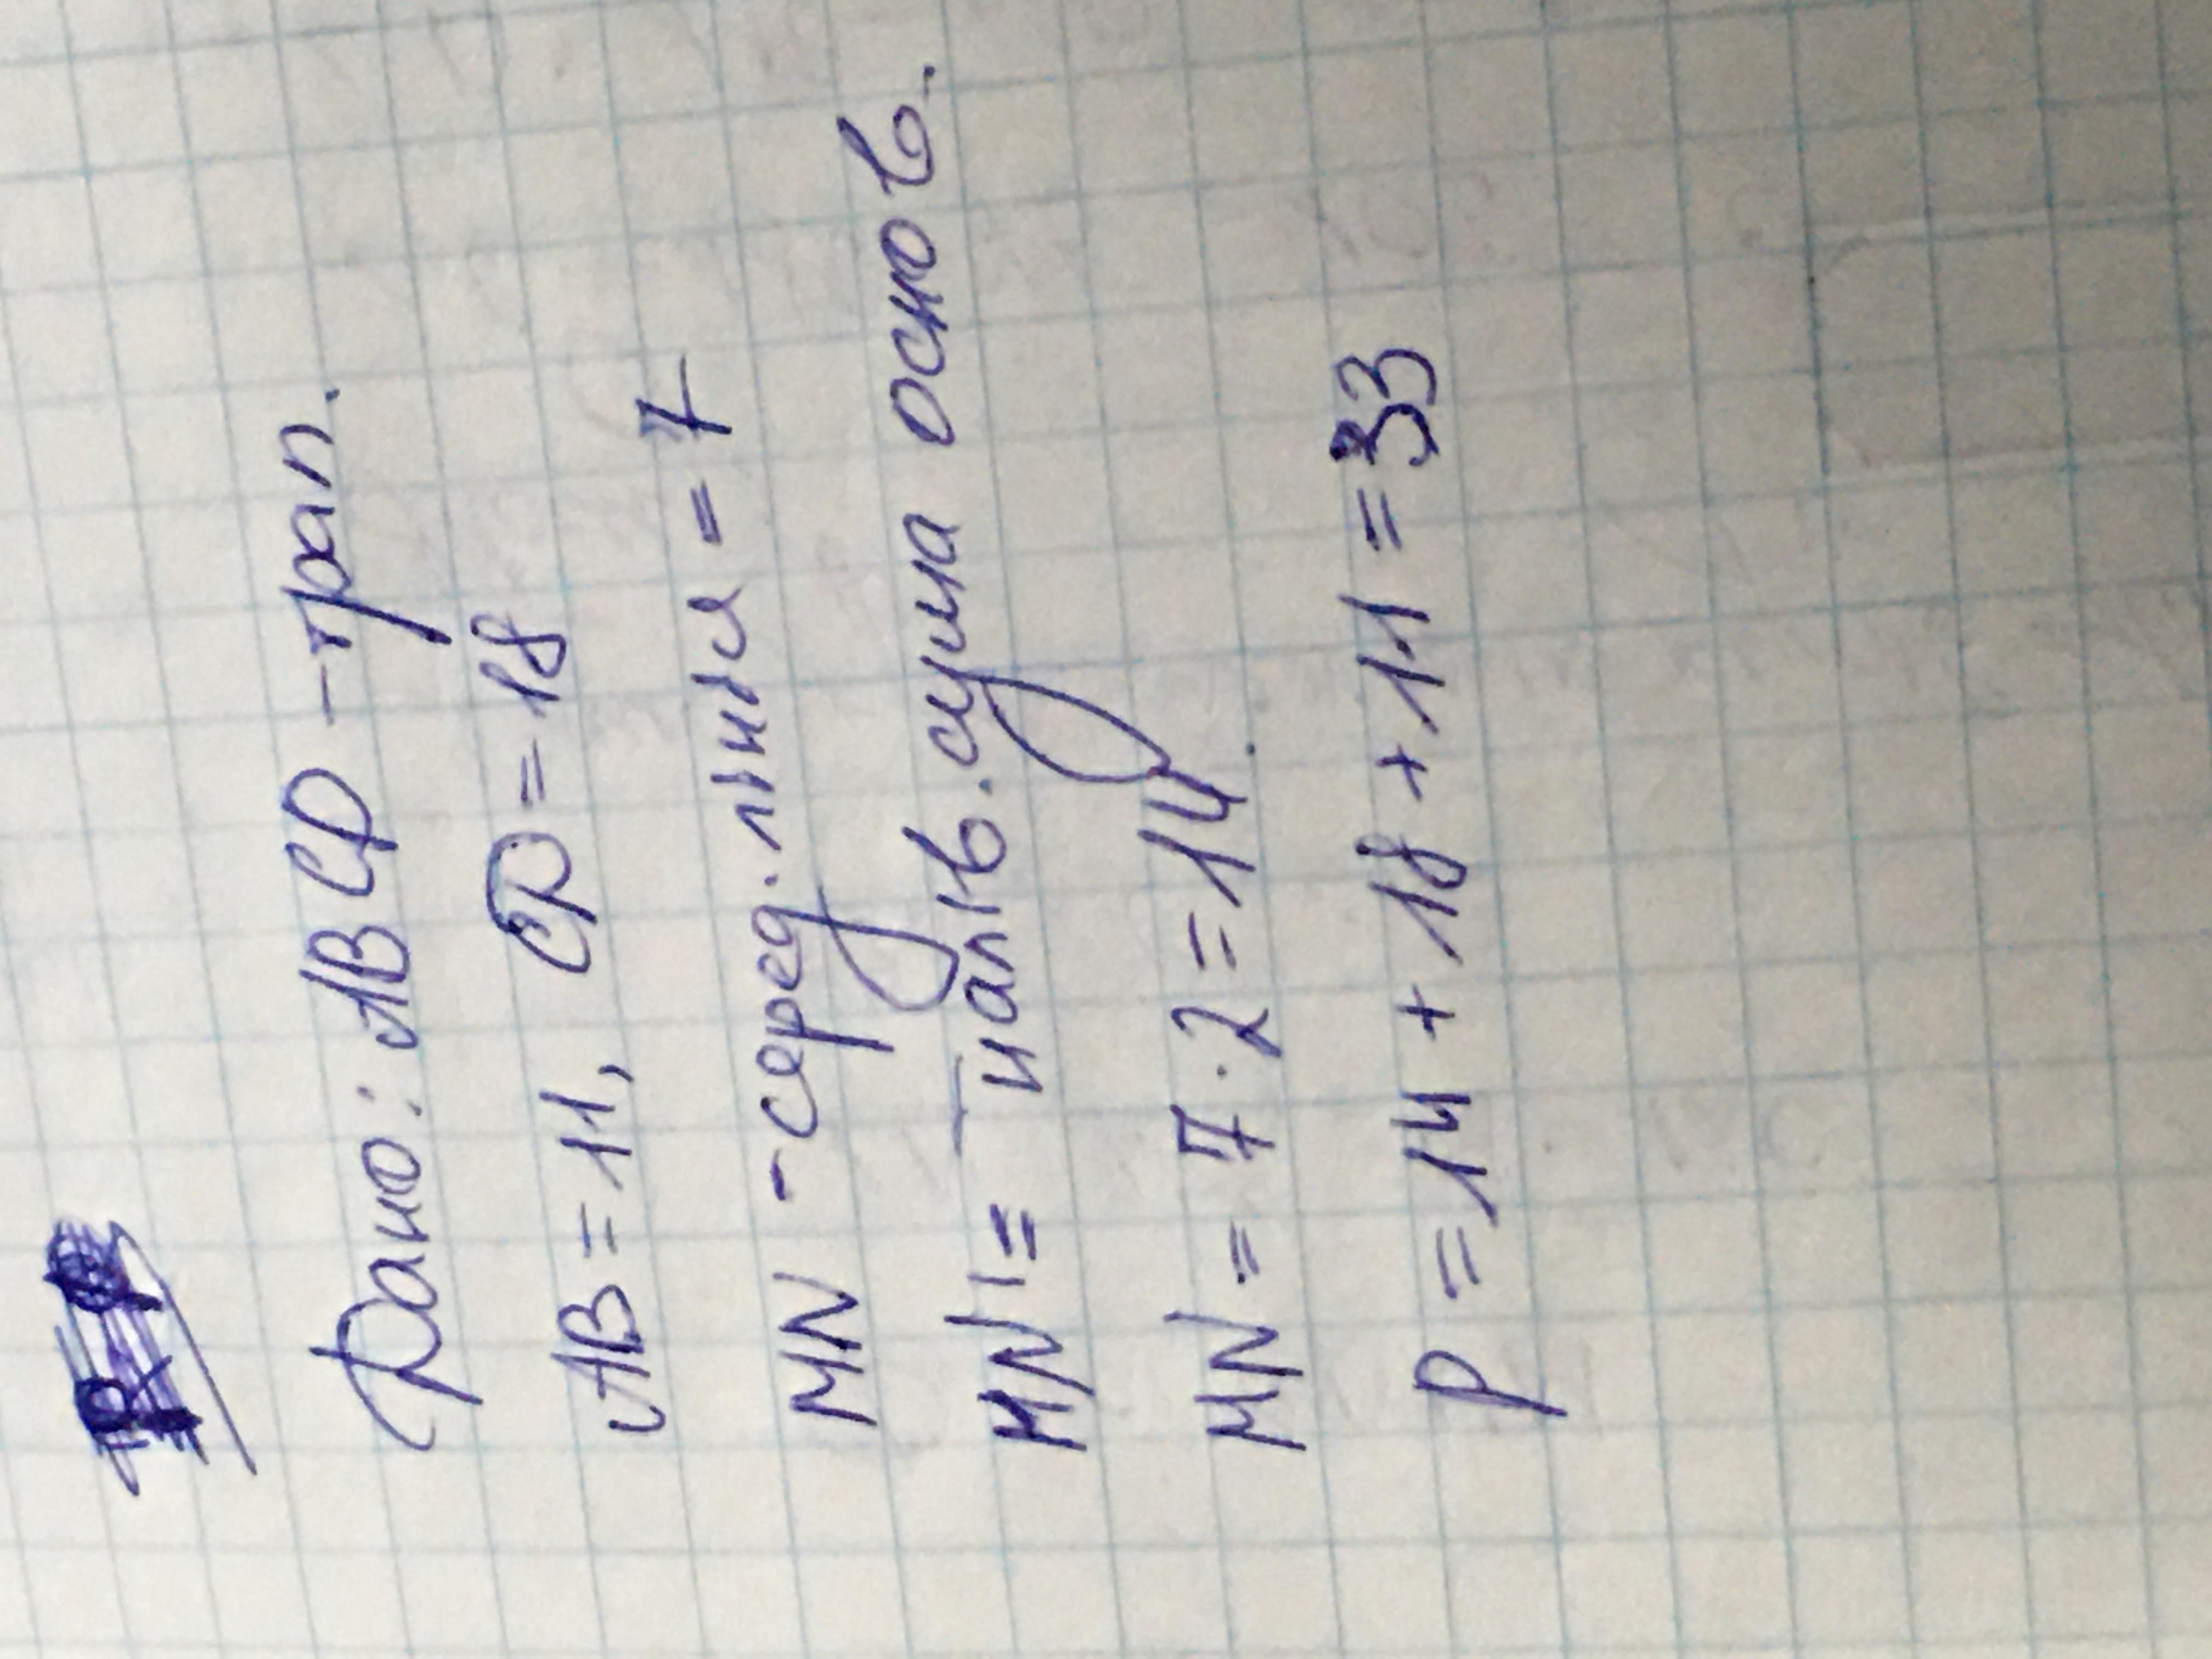 Дано: ABCD - трап.
AB = 11, CD = 18
MN - серед. лінія = 7
MN = напів. сума основ.
MN = 7 · 2 = 14
P = 14 + 18 + 11 = 33